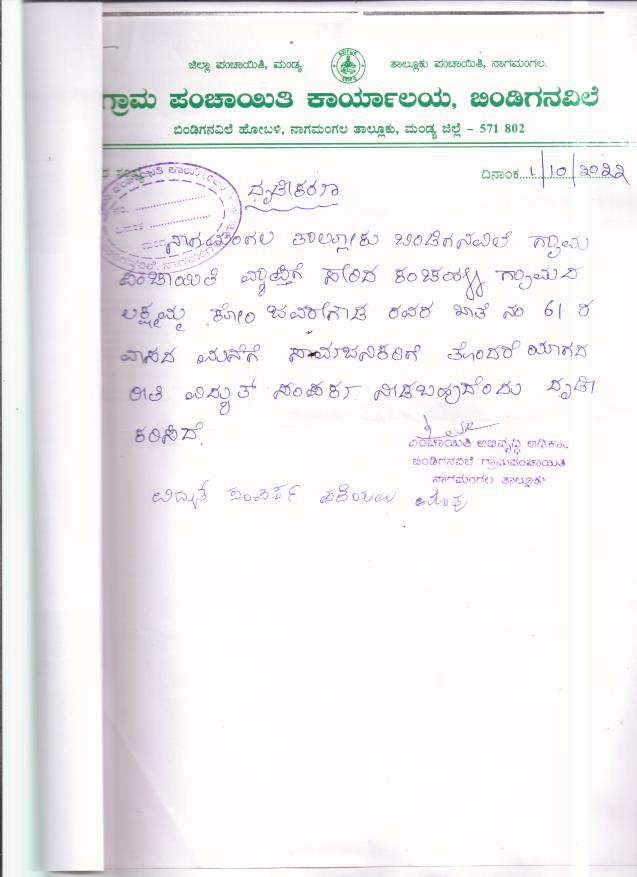 ಜಿಲ್ಲಾ ಪಂಚಾಯಿತಿ, ಮಂಡ್ಯ ತಾಲ್ಲೂಕು ಪಂಚಾಯಿತಿ, ನಾಗಮಂಗಲ.
ಗ್ರಾಮ ಪಂಚಾಯಿತಿ ಕಾರ್ಯಾಲಯ, ಬಿಂಡಿಗನವಿಲೆ
ಬಿಂಡಿಗನವಿಲೆ ಹೋಬಳಿ, ನಾಗಮಂಗಲ ತಾಲ್ಲೂಕು, ಮಂಡ್ಯ ಜಿಲ್ಲೆ - 571 802
ದಿನಾಂಕ...1/10/2022
ದೃಢೀಕರಣ
ನಾಗಮಂಗಲ ತಾಲ್ಲೂಕು ಬಿಂಡಿಗನವಿಲೆ ಗ್ರಾಮ
ಪಂಚಾಯಿತಿ ವ್ಯಾಪ್ತಿಗೆ ಸೇರಿದ ಗ್ರಾಮದ
ಲಕ್ಷ್ಮಮ್ಮ ಕೋಂ ಜವರೇಗೌಡ ರವರ ಖಾತೆ ನಂ 61 ರ
ವಾಸದ ಮನೆಗೆ ಸಾರ್ವಜನಿಕರಿಗೆ ತೊಂದರೆಯಾಗದ
ರೀತಿ ವಿದ್ಯುತ್ ಸಂಪರ್ಕ ನೀಡಬಹುದೆಂದು ದೃಢೀ
ಕರಿಸಿದೆ.
ಪಂಚಾಯಿತಿ ಅಭಿವೃದ್ಧಿ ಅಧಿಕಾರಿ
ಬಿಂಡಿಗನವಿಲೆ ಗ್ರಾಮಪಂಚಾಯಿತಿ
ನಾಗಮಂಗಲ ತಾಲ್ಲೂಕು
ವಿದ್ಯುತ್ ಸಂಪರ್ಕ ಪಡೆಯಲು ಮಾತ್ರ